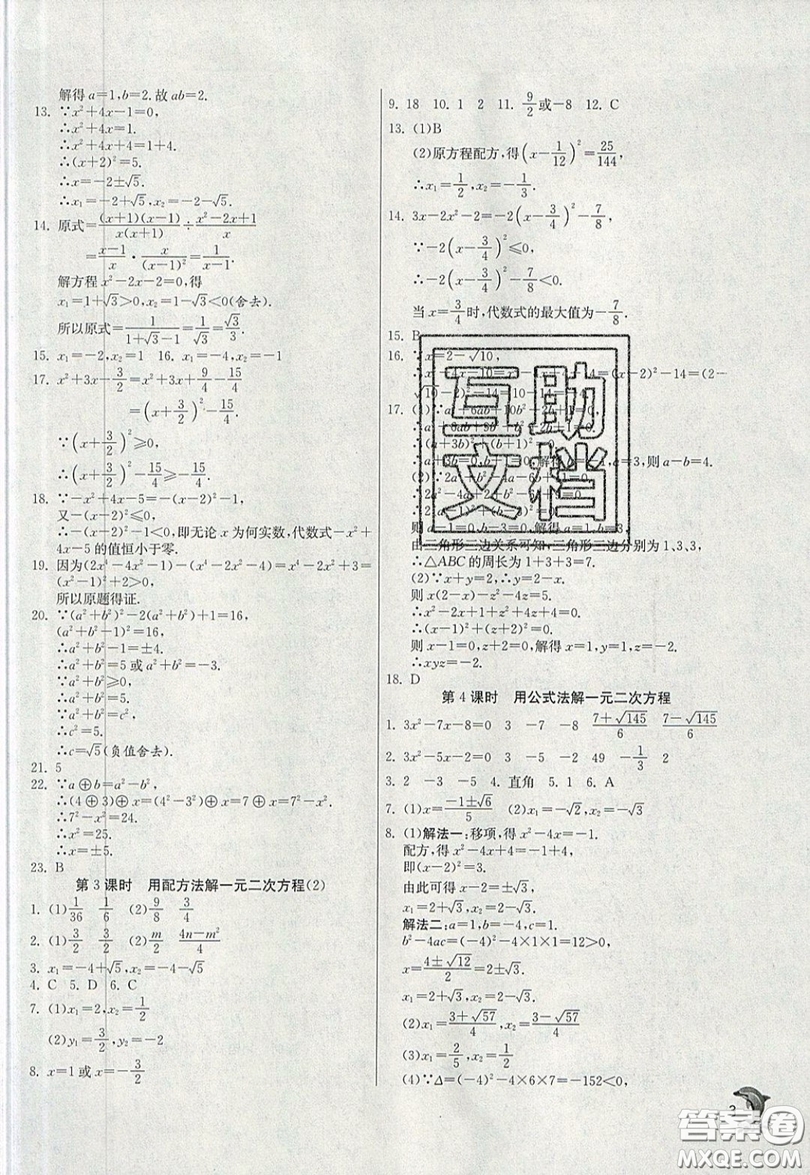 解得a=1,b=2.故ab=2.
13. ∵x²+4x-1=0,
∴x²+4x=1.
∴x²+4x+4=1+4.
∴(x+2)²=5.
∴x=-2±√5.
∴x₁=-2+√5,x₂=-2-√5.
14. 原式=(x+1)(x-1)/x(x+1)÷(x²-2x+1)/x
=(x-1)/x·x/(x-1)²=1/(x-1).
解方程x²-2x-2=0,得
x₁=1+√3>0,x₂=1-√3<0(舍去).
所以原式=1/(1+√3-1)=1/√3=√3/3.
15. x₁=-2,x₂=1 16. x₁=-4,x₂=-1
17. x²+3x-3/2=x²+3x+9/4-15/4
=(x+3/2)²-15/4.
∵(x+3/2)²≥0,
∴(x+3/2)²-15/4≥-15/4.
18. ∵-x²+4x-5=-(x-2)²-1,
又-(x-2)²≤0,
∴-(x-2)²-1<0,即无论x为何实数,代数式-x²+
4x-5的值恒小于零.
19. 因为(2x⁴-4x²-1)-(x⁴-2x²-4)=x⁴-2x²+3=
(x²-1)²+2>0,
所以原题得证.
20. ∵(a²+b²)²-2(a²+b²)+1=16,
(a²+b²-1)²=16,
∴a²+b²-1=±4.
∴a²+b²=5或a²+b²=-3.
∵a²+b²≥0,
∴a²+b²=5.
∵a²+b²=c²,
∴c²=5.
∴c=√5(负值舍去).
21. 5
22. ∵a⊕b=a²-b²,
∴(4⊕3)⊕x=(4²-3²)⊕x=7⊕x=7²-x².
∴7²-x²=24.
∴x²=25.
∴x=±5.
23. B
第3课时 用配方法解一元二次方程(2)
1. (1)1/36 1/6 (2)9/8 3/4
2. (1)3/2 3/2 (2)m/2 (4n-m²)/4
3. x₁=-4+√5,x₂=-4-√5
4. C 5. D 6. C
7. (1)x₁=2,x₂=1/2
(2)y₁=3/2,y₂=-2
8. x=1或x=-3/2
9. 18 10. 1 2 11. 9/2或-8 12. C
13. (1)B
(2)原方程配方,得(x-1/12)²=25/144,
∴x₁=1/2,x₂=-1/3.
14. 3x-2x²-2=-2(x-3/4)²-7/8,
∵-2(x-3/4)²≤0,
∴-2(x-3/4)²-7/8<0.
当x=3/4时,代数式的最大值为-7/8.
15. B
16. ∵x=2-√10,
=(x-2)²-14=(2-
17. (1)∵
a=3,则a-b=4.
(2)
则a-1=0,b-3=0,解得a=1,b=3,
由三角形三边关系可知,三角形三边分别为1,3,3,
∴△ABC的周长为1+3+3=7.
(2)∵x+y=2,∴y=2-x.
则x(2-x)-z²-4z=5.
∴x²-2x+1+z²+4z+4=0.
∴(x-1)²+(z+2)²=0.
则x-1=0,z+2=0,解得x=1,y=1,z=-2.
∴xyz=-2.
18. D
第4课时 用公式法解一元二次方程
1. 3x²-7x-8=0 3 -7 -8 (7+√145)/6 (7-√145)/6
2. 3x²-5x-2=0 3 -5 -2 49 -1/3 2
3. 2 -3 -5 4. 直角 5. 1 6. A
7. (1)x=(-1±√6)/5 (2)x₁=-√2,x₂=-√3
8. (1)解法一:移项,得x²-4x=-1.
配方,得x²-4x+4=-1+4,
即(x-2)²=3.
由此可得x-2=±√3,
x₁=2+√3,x₂=2-√3.
解法二:a=1,b=-4,c=1.
b²-4ac=(-4)²-4×1×1=12>0,
x=(4±√12)/2=2±√3,
x₁=2+√3,x₂=2-√3.
(2)x₁=(3+√57)/4,x₂=(3-√57)/4
(3)x₁=2/5,x₂=1/2
(4)∵Δ=(-4)²-4×6×7=-152<0,
3
互助
文档
答案卷
MXQE.COM